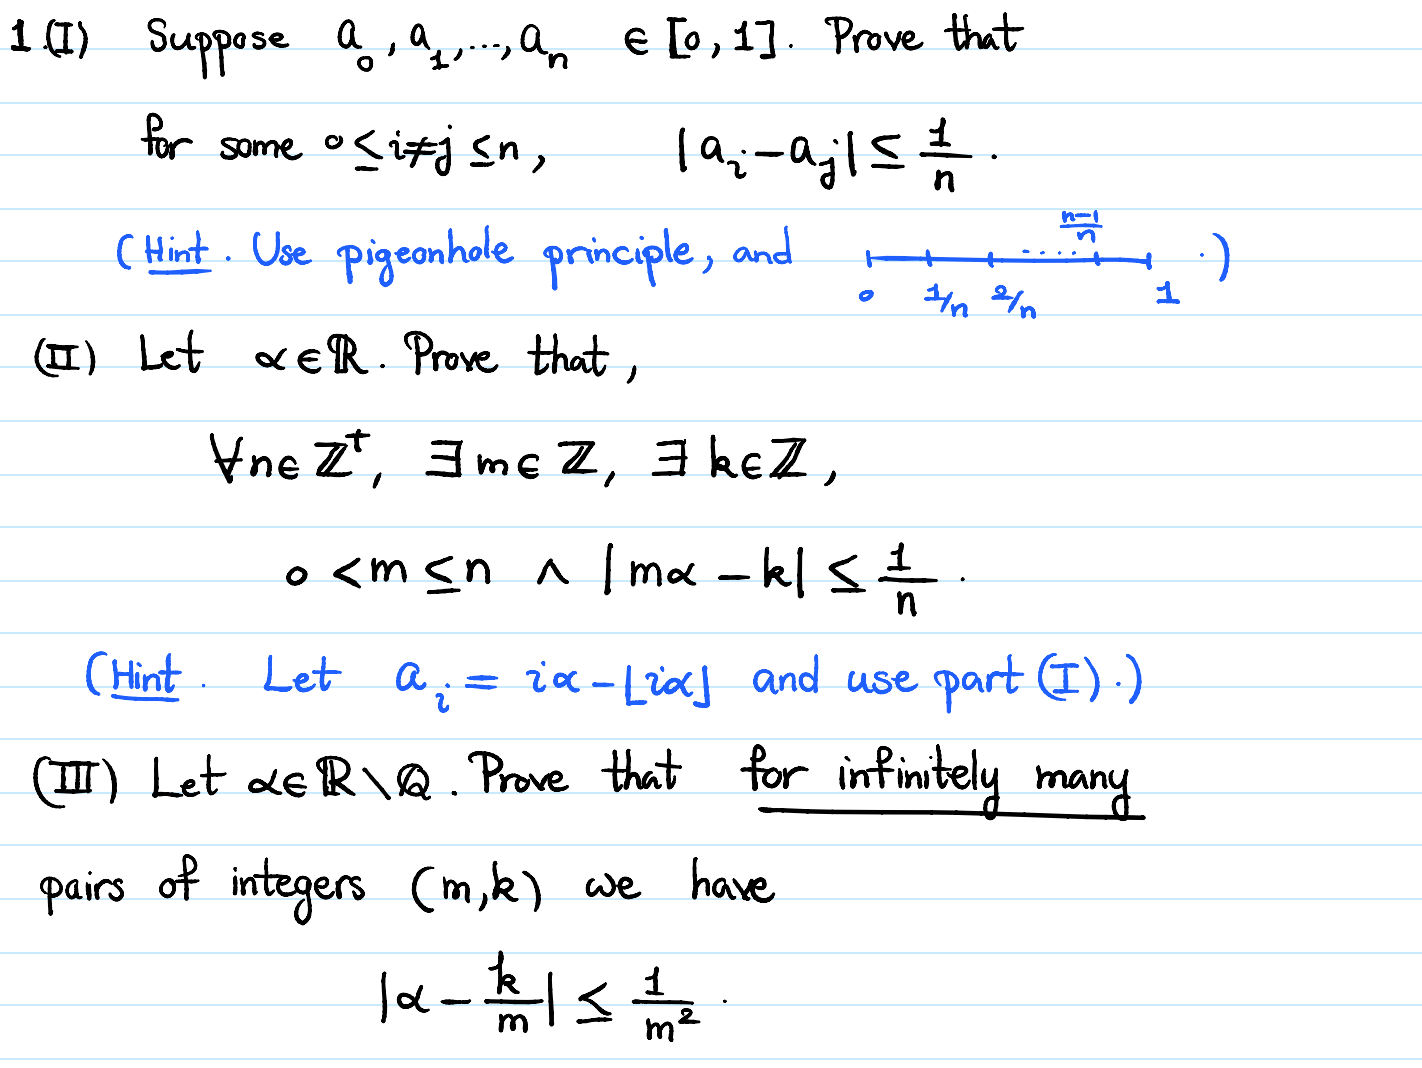 1.(I) Suppose a₀, a₁, ..., aₙ ∈ [0, 1]. Prove that
for some 0 ≤ i ≠ j ≤ n, |aᵢ - aⱼ| ≤ 1/n.
(Hint. Use pigeonhole principle, and 0 1/n 2/n .... n-1/n 1 .)
(II) Let α ∈ ℝ. Prove that,
∀n ∈ ℤ⁺, ∃ m ∈ ℤ, ∃ k ∈ ℤ,
0 < m ≤ n ∧ |mα - k| ≤ 1/n.
(Hint. Let aᵢ = iα - ⌊iα⌋ and use part (I).)
(III) Let α ∈ ℝ \ ℚ. Prove that for infinitely many
pairs of integers (m, k) we have
|α - k/m| ≤ 1/m².